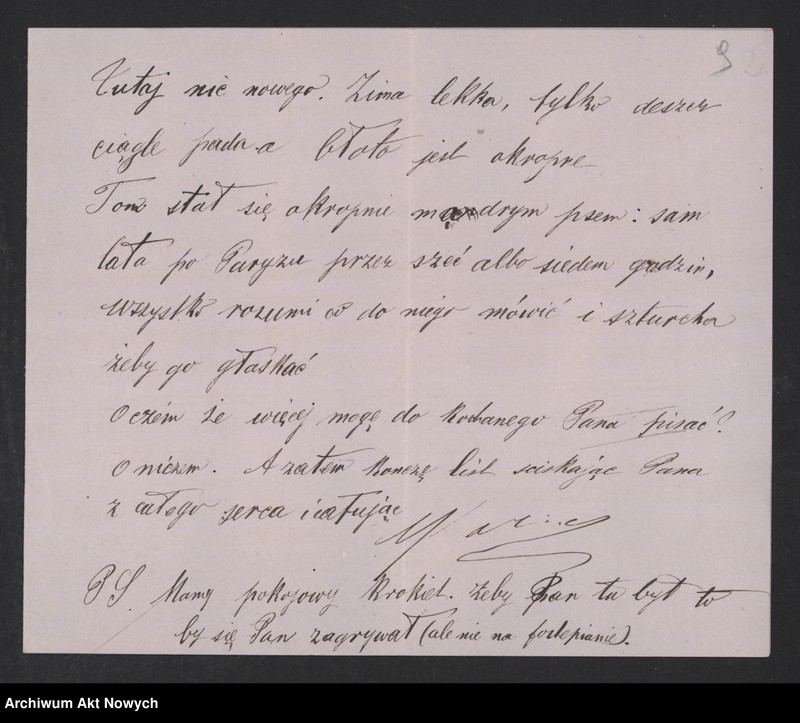 9
Tutaj nic nowego. Zima lekka, tylko deszcz
ciągle pada a błoto jest okropne
Tom stał się okropnie mądrym psem: sam
lata po Paryzu przez szeć albo siedem godzin,
wszystko rozumi co do niego mówić i szturcha
żeby go głaskać
O czém że więcej mogę do kochanego Pana pisać?
O niczem. A zatem konczę list sciskając Pana
z całego serca i całując
PS. Mamy pokojowy krokiet. Żeby Pan tu był to
by się Pan zagrywał (ale nie na fortepianie).
Archiwum Akt Nowych